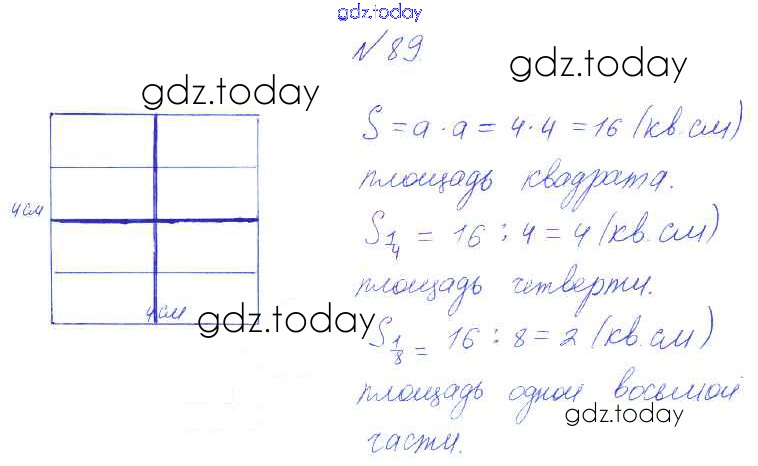 gdz.today
№89.
gdz.today
gdz.today
S = a · a = 4 · 4 = 16 (кв.см)
площадь квадрата.
4 см
S 1/4 = 16 : 4 = 4 (кв.см)
площадь четверти.
4 см
gdz.today
S 1/8 = 16 : 8 = 2 (кв.см)
площадь одной восьмой
gdz.today
части.